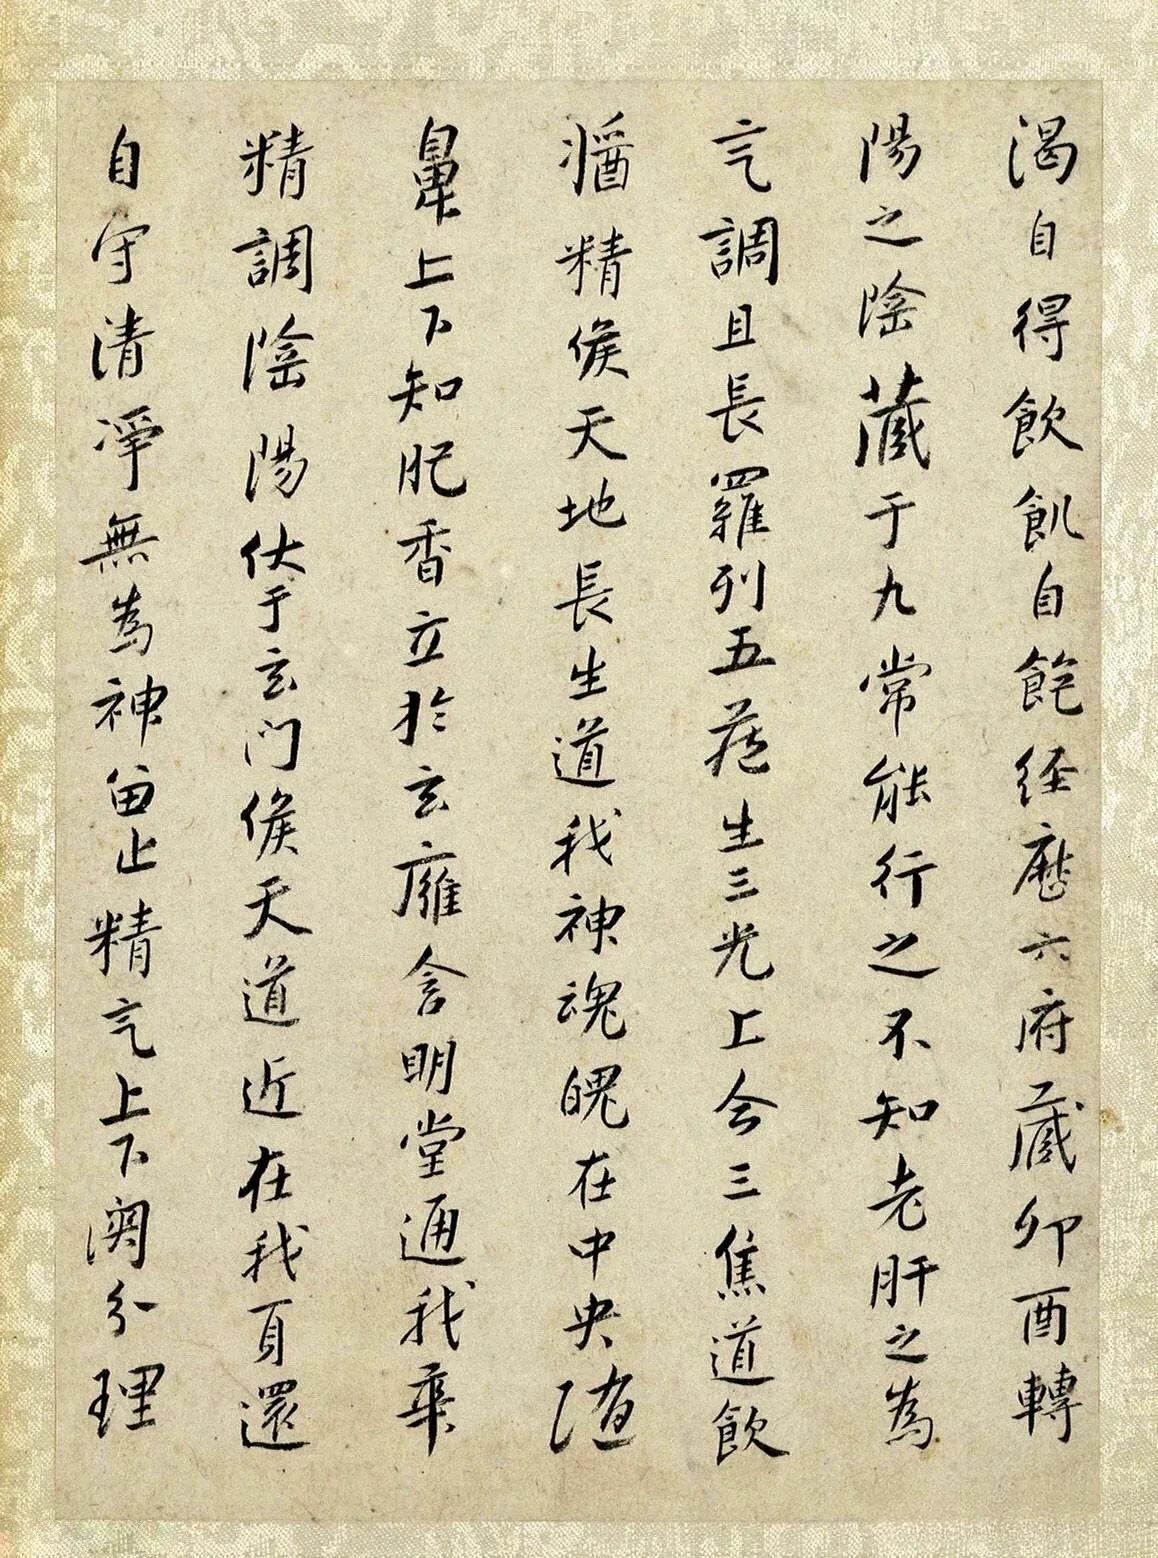 渴自得飲飢自飽經歷六府藏卯酉轉
陽之陰藏于九常能行之不知老肝之為
气調且長羅列五藏生三光上合三焦道飲
醬精候天地長生道我神魂魄在中央随
鼻上下知肥香立於玄廱含明堂通我華
精調陰陽伏于玄門候天道近在我頁還
自守清凈無為神留止精气上下開分理